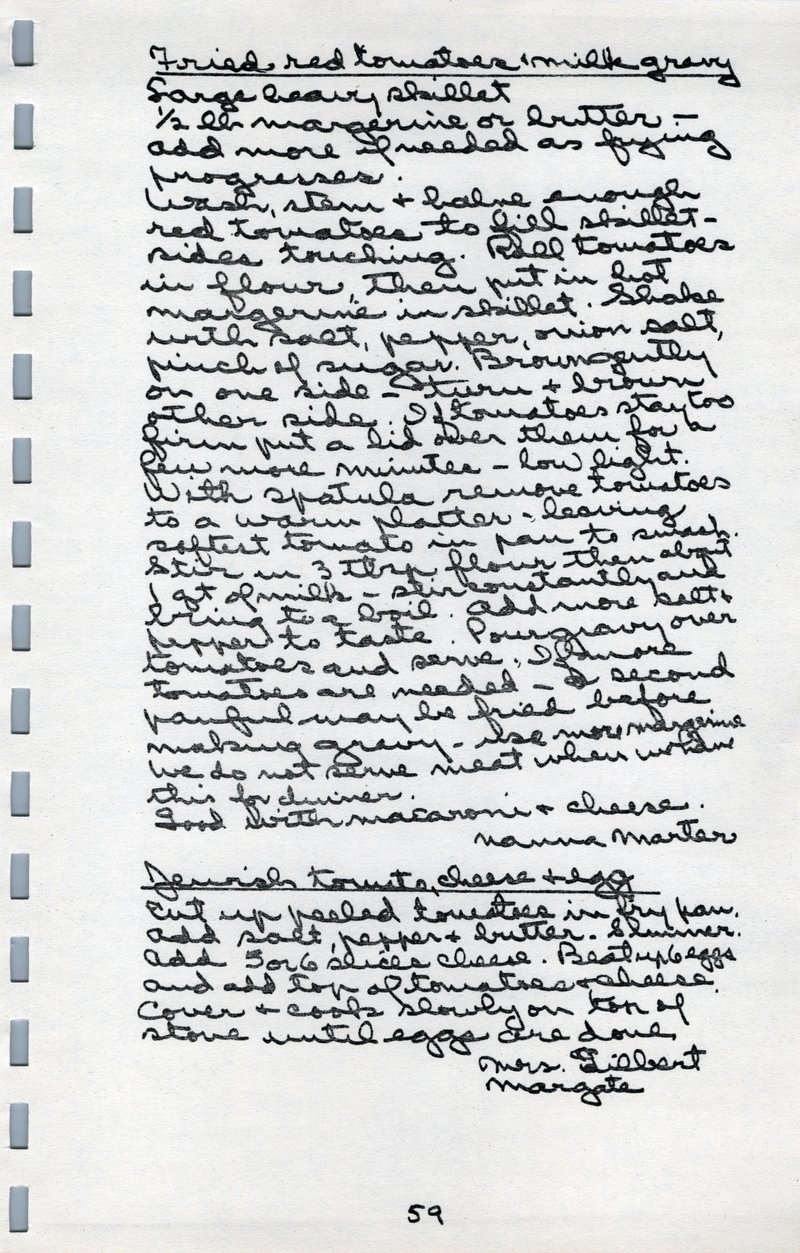 Fried red tomatoes & milk gravy
Large heavy skillet
1/2 lb margerine or butter -
add more if needed as frying
progresses.
Wash, stem + halve enough
red tomatoes to fill skillet -
sides touching. Roll tomatoes
in flour, then put in hot
margerine in skillet. Shake
with salt, pepper, onion salt,
pinch of sugar. Brown gently
on one side - turn + brown
other side. If tomatoes stay too
firm put a lid over them for a
few more minutes - low light.
With spatula remove tomatoes
to a warm platter - leaving
softest tomato in pan to smash.
Stir in 3 tbsp. flour then about
1 qt of milk - stir constantly and
bring to a boil. Add more salt +
pepper to taste. Pour gravy over
tomatoes and serve. If more
tomatoes are needed - a second
panful may be fried before
making gravy - use more margerine
We do not serve meat when we have
this for dinner.
Good with macaroni + cheese.
Nanna Marter
Jewish tomato, cheese + egg
Cut up peeled tomatoes in fry pan.
Add salt, pepper + butter. Simmer.
Add 5 or 6 slices cheese. Beat up 6 eggs
and add top of tomatoes + cheese.
Cover + cook slowly on top of
stove until eggs are done.
Mrs. Gilbert
Margate
59